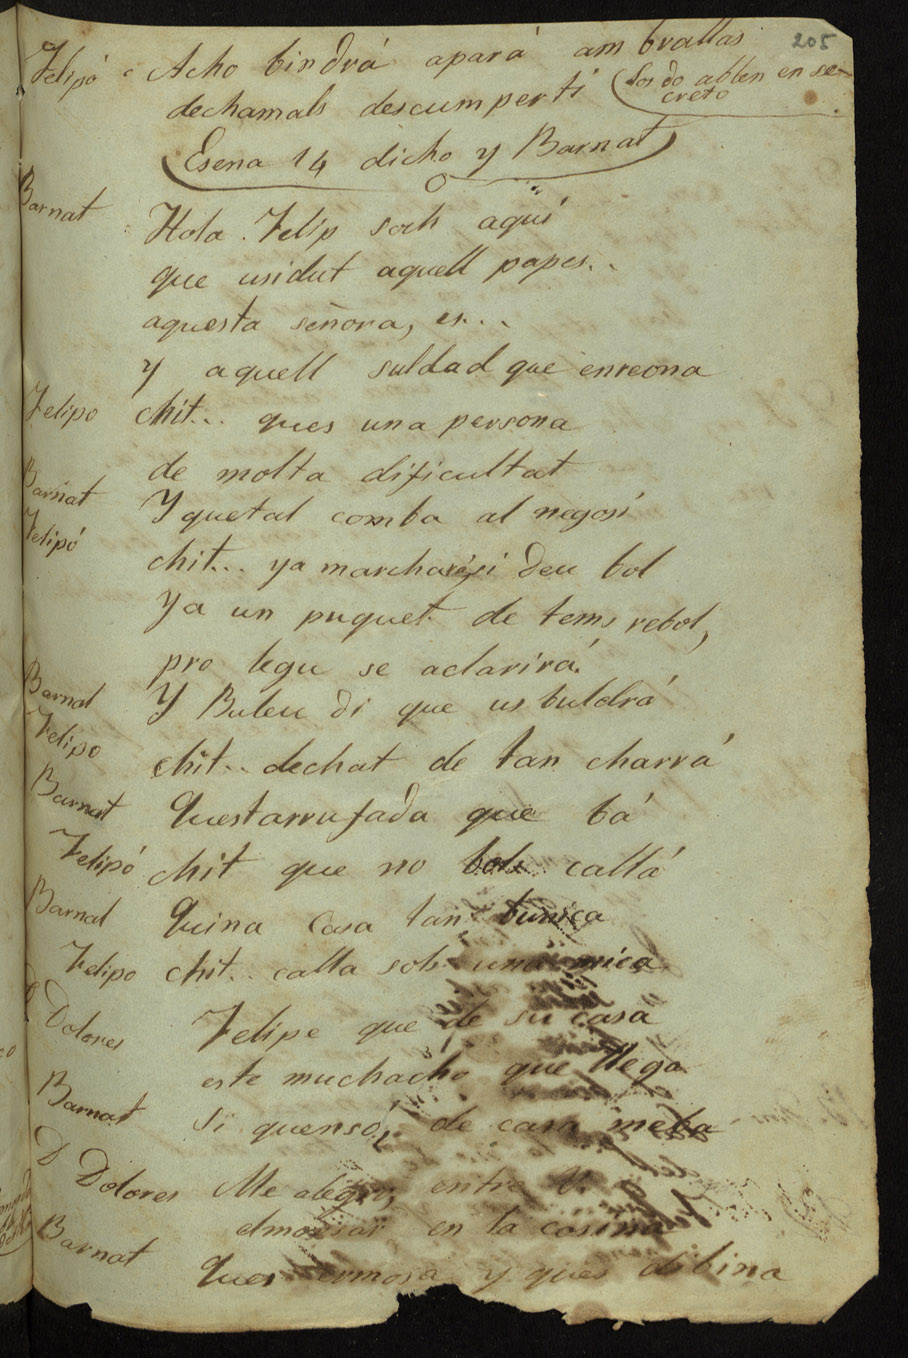 205
Felipó Acho bindrá apará am brallas
(Los do ablen en se-
creto
dechamals descumpertí
(Esena 14 dicho y Barnat)
Barnat Hola Felip soch aqui
que usidut aquell papes..
aquesta señora, es...
y aquell suldad que enreona
Felipo chit... ques una persona
de molta dificultat
Barnat Y quetal comba al negosi
Felipó chit... ya marchará si Deu bol
Ya un puquet de tems rebol,
pro legu se aclarirá.
Barnat Y Buleu di que us buldrá
Felipo chit.. dechat de tan charrá
Barnat Questarrufada que bá
Felipó chit que no bols callá
Barnat Quina Casa tan bunica
Felipo chit.. calla sols una mica
D Dolores Felipe que de su casa
este muchacho que llega
Barnat Si quensó, de casa meba
D Dolores Me alegro, entre V. a
almorsar en la cosina
Barnat Ques ermosa y ques dibina